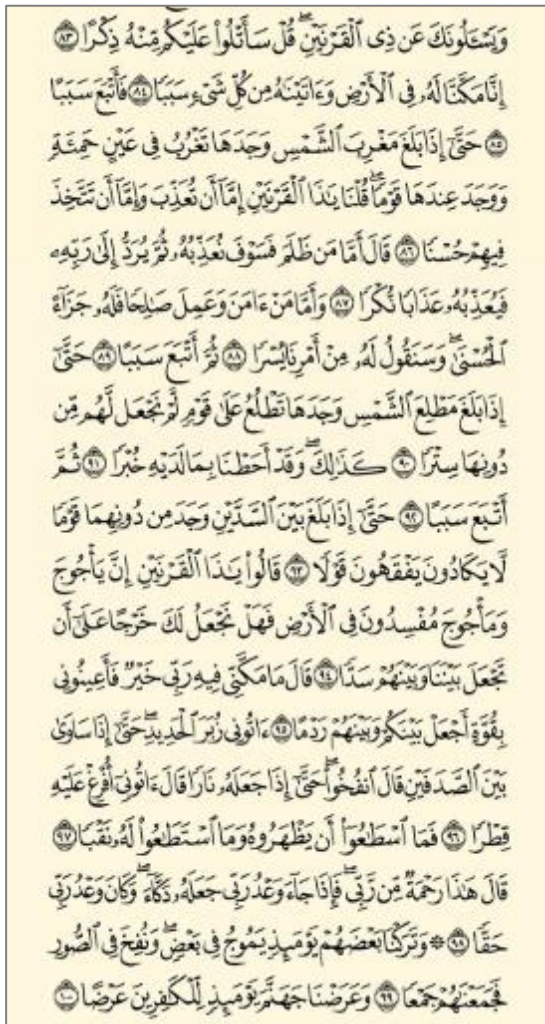 وَيَسْـَٔلُونَكَ عَن ذِى ٱلْقَرْنَيْنِ ۖ قُلْ سَأَتْلُوا۟ عَلَيْكُم مِّنْهُ ذِكْرًا ۝٨٣
إِنَّا مَكَّنَّا لَهُۥ فِى ٱلْأَرْضِ وَءَاتَيْنَـٰهُ مِن كُلِّ شَىْءٍ سَبَبًا ۝٨٤ فَأَتْبَعَ سَبَبًا
۝٨٥ حَتَّىٰٓ إِذَا بَلَغَ مَغْرِبَ ٱلشَّمْسِ وَجَدَهَا تَغْرُبُ فِى عَيْنٍ حَمِئَةٍ
وَوَجَدَ عِندَهَا قَوْمًا ۗ قُلْنَا يَـٰذَا ٱلْقَرْنَيْنِ إِمَّآ أَن تُعَذِّبَ وَإِمَّآ أَن تَتَّخِذَ
فِيهِمْ حُسْنًا ۝٨٦ قَالَ أَمَّا مَن ظَلَمَ فَسَوْفَ نُعَذِّبُهُۥ ثُمَّ يُرَدُّ إِلَىٰ رَبِّهِۦ
فَيُعَذِّبُهُۥ عَذَابًا نُّكْرًا ۝٨٧ وَأَمَّا مَنْ ءَامَنَ وَعَمِلَ صَـٰلِحًا فَلَهُۥ جَزَآءً
ٱلْحُسْنَىٰ ۖ وَسَنَقُولُ لَهُۥ مِنْ أَمْرِنَا يُسْرًا ۝٨٨ ثُمَّ أَتْبَعَ سَبَبًا ۝٨٩ حَتَّىٰٓ
إِذَا بَلَغَ مَطْلِعَ ٱلشَّمْسِ وَجَدَهَا تَطْلُعُ عَلَىٰ قَوْمٍ لَّمْ نَجْعَل لَّهُم مِّن
دُونِهَا سِتْرًا ۝٩٠ كَذَٰلِكَ ۖ وَقَدْ أَحَطْنَا بِمَا لَدَيْهِ خُبْرًا ۝٩١ ثُمَّ
أَتْبَعَ سَبَبًا ۝٩٢ حَتَّىٰٓ إِذَا بَلَغَ بَيْنَ ٱلسَّدَّيْنِ وَجَدَ مِن دُونِهِمَا قَوْمًا
لَّا يَكَادُونَ يَفْقَهُونَ قَوْلًا ۝٩٣ قَالُوا۟ يَـٰذَا ٱلْقَرْنَيْنِ إِنَّ يَأْجُوجَ
وَمَأْجُوجَ مُفْسِدُونَ فِى ٱلْأَرْضِ فَهَلْ نَجْعَلُ لَكَ خَرْجًا عَلَىٰٓ أَن
تَجْعَلَ بَيْنَنَا وَبَيْنَهُمْ سَدًّا ۝٩٤ قَالَ مَا مَكَّنِّى فِيهِ رَبِّى خَيْرٌ فَأَعِينُونِى
بِقُوَّةٍ أَجْعَلْ بَيْنَكُمْ وَبَيْنَهُمْ رَدْمًا ۝٩٥ ءَاتُونِى زُبَرَ ٱلْحَدِيدِ ۖ حَتَّىٰٓ إِذَا سَاوَىٰ
بَيْنَ ٱلصَّدَفَيْنِ قَالَ ٱنفُخُوا۟ ۖ حَتَّىٰٓ إِذَا جَعَلَهُۥ نَارًا قَالَ ءَاتُونِىٓ أُفْرِغْ عَلَيْهِ
قِطْرًا ۝٩٦ فَمَا ٱسْطَـٰعُوٓا۟ أَن يَظْهَرُوهُ وَمَا ٱسْتَطَـٰعُوا۟ لَهُۥ نَقْبًا ۝٩٧
قَالَ هَـٰذَا رَحْمَةٌ مِّن رَّبِّى ۖ فَإِذَا جَآءَ وَعْدُ رَبِّى جَعَلَهُۥ دَكَّآءَ ۖ وَكَانَ وَعْدُ رَبِّى
حَقًّا ۝٩٨ ۞ وَتَرَكْنَا بَعْضَهُمْ يَوْمَئِذٍ يَمُوجُ فِى بَعْضٍ ۖ وَنُفِخَ فِى ٱلصُّورِ
فَجَمَعْنَـٰهُمْ جَمْعًا ۝٩٩ وَعَرَضْنَا جَهَنَّمَ يَوْمَئِذٍ لِّلْكَـٰفِرِينَ عَرْضًا ۝١٠٠